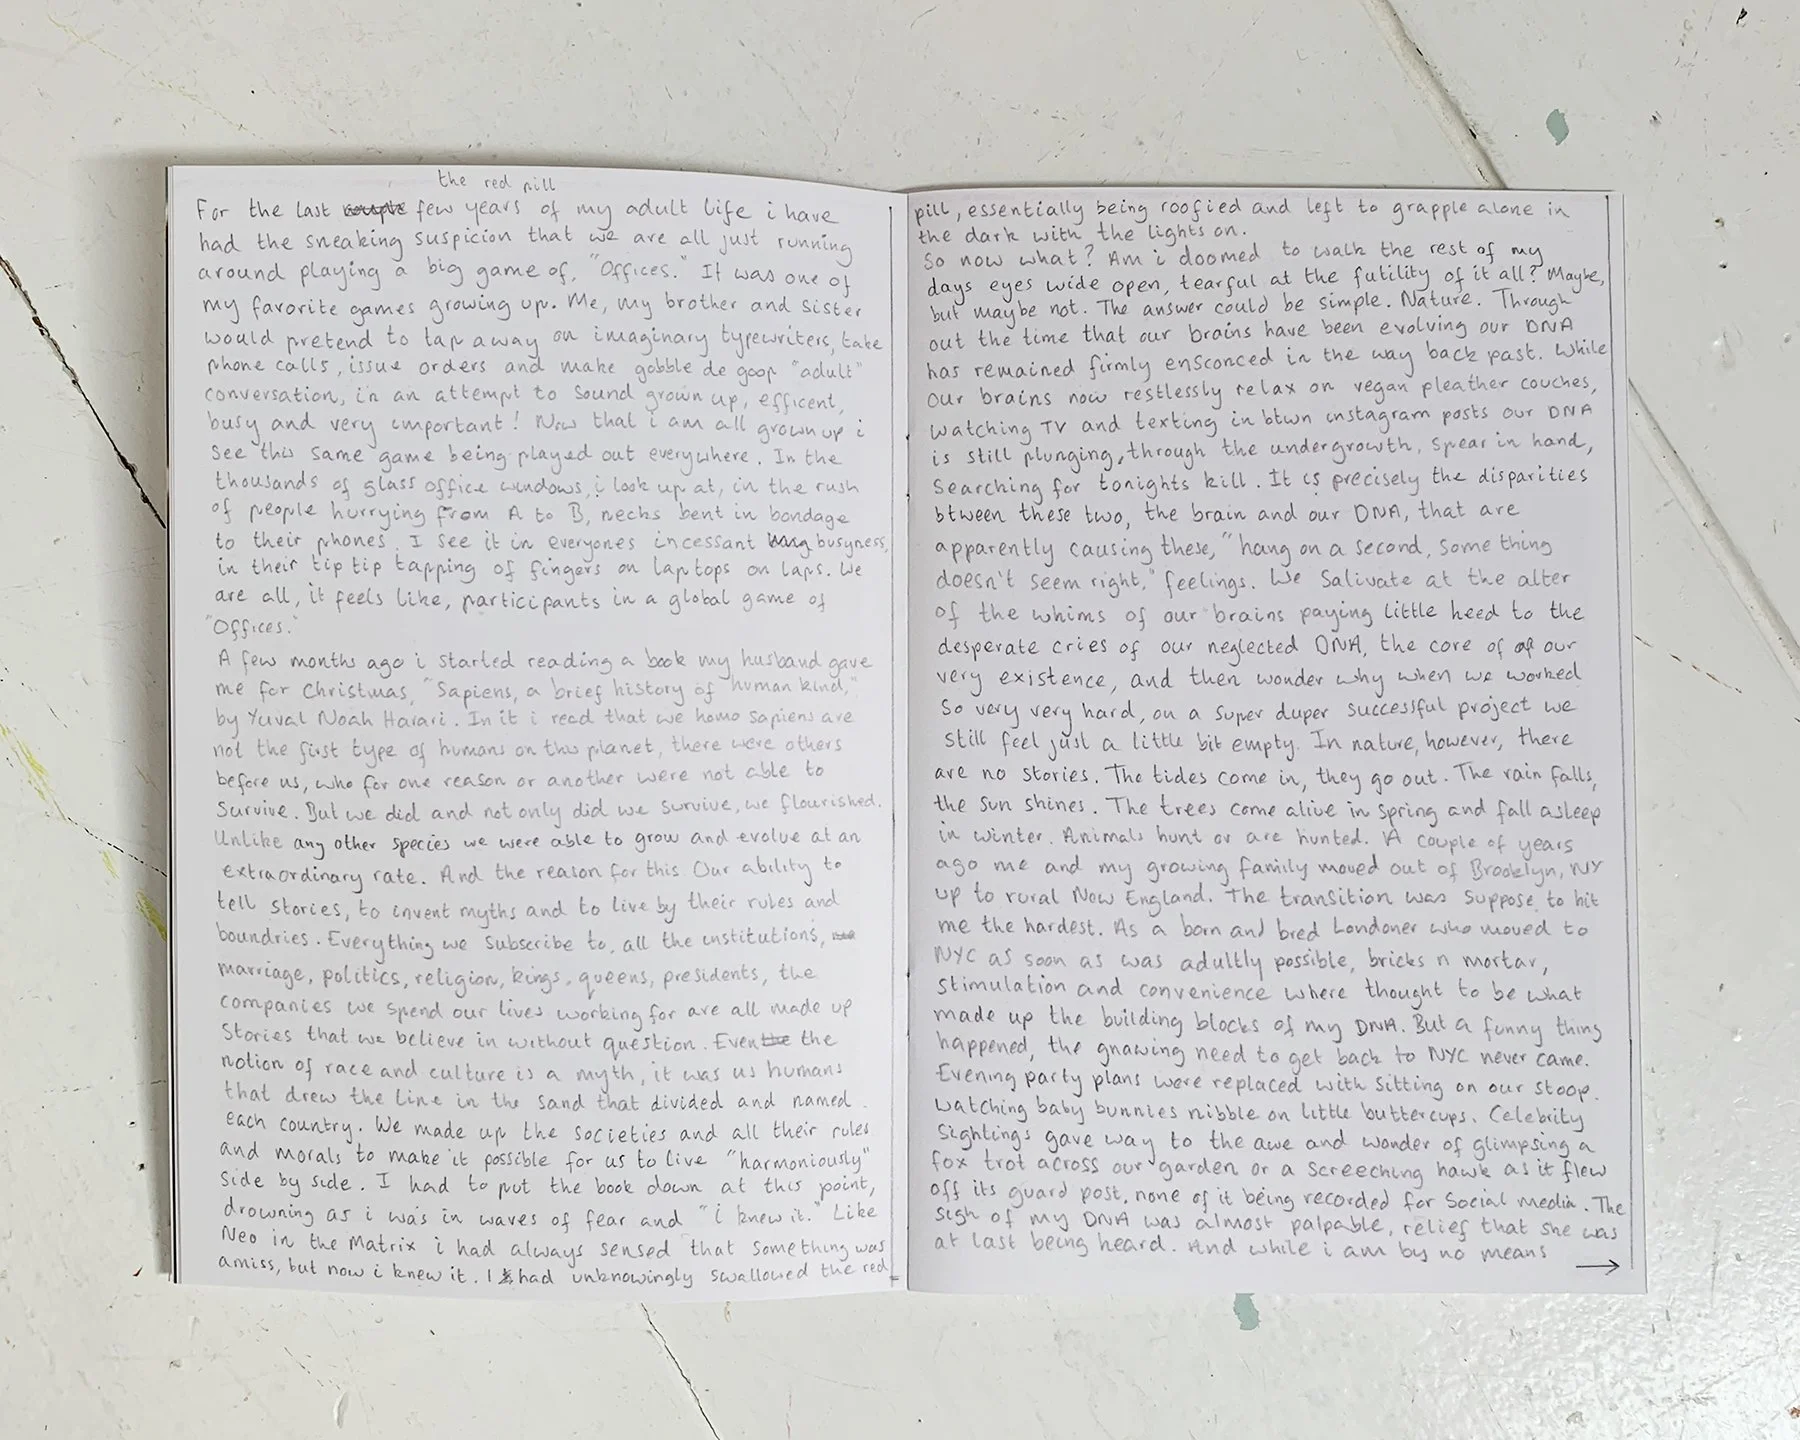 the red pill
For the last couple few years of my adult life i have
had the sneaking suspicion that we are all just running
around playing a big game of, "Offices." It was one of
my favorite games growing up. Me, my brother and sister
would pretend to tap away on imaginary typewriters, take
phone calls, issue orders and make gobble de goop "adult"
conversation, in an attempt to sound grown up, efficent,
busy and very important! Now that i am all grown up i
see this same game being played out everywhere. In the
thousands of glass office windows, i look up at, in the rush
of people hurrying from A to B, necks bent in bondage
to their phones. I see it in everyones incessant busyness,
in their tip tip tapping of fingers on laptops on laps. We
are all, it feels like, participants in a global game of
"Offices."
A few months ago i started reading a book my husband gave
me for Christmas, "Sapiens, a brief history of human kind,"
by Yuval Noah Harari. In it i read that we homo sapiens are
not the first type of humans on this planet, there were others
before us, who for one reason or another were not able to
survive. But we did and not only did we survive, we flourished.
Unlike any other species we were able to grow and evolve at an
extraordinary rate. And the reason for this Our ability to
tell stories, to invent myths and to live by their rules and
boundries. Everything we subscribe to, all the institutions,
marriage, politics, religion, kings, queens, presidents, the
companies we spend our lives working for are all made up
stories that we believe in without question. Even the the
notion of race and culture is a myth, it was us humans
that drew the line in the sand that divided and named
each country. We made up the societies and all their rules
and morals to make it possible for us to live "harmoniously"
side by side. I had to put the book down at this point,
drowning as i was in waves of fear and "i knew it." Like
Neo in the Matrix i had always sensed that something was
amiss, but now i knew it. I had unknowingly swallowed the red
pill, essentially being roofied and left to grapple alone in
the dark with the lights on.
So now what? Am i doomed to walk the rest of my
days eyes wide open, tearful at the futility of it all? Maybe,
but maybe not. The answer could be simple. Nature. Through
out the time that our brains have been evolving our DNA
has remained firmly ensconced in the way back past. While
our brains now restlessly relax on vegan pleather couches,
watching TV and texting in btwn instagram posts our DNA
is still plunging, through the undergrowth, spear in hand,
searching for tonights kill. It is precisely the disparities
btween these two, the brain and our DNA, that are
apparently causing these, "hang on a second, some thing
doesn't seem right," feelings. We salivate at the alter
of the whims of our brains paying little heed to the
desperate cries of our neglected DNA, the core of of our
very existence, and then wonder why when we worked
so very very hard, on a super duper successful project we
still feel just a little bit empty. In nature, however, there
are no stories. The tides come in, they go out. The rain falls,
the sun shines. The trees come alive in spring and fall asleep
in winter. Animals hunt or are hunted. A couple of years
ago me and my growing family moved out of Brooklyn, NY
up to rural New England. The transition was suppose to hit
me the hardest. As a born and bred Londoner who moved to
NYC as soon as was adultly possible, bricks n mortar,
stimulation and convenience where thought to be what
made up the building blocks of my DNA. But a funny thing
happened, the gnawing need to get back to NYC never came.
Evening party plans were replaced with sitting on our stoop
watching baby bunnies nibble on little buttercups. Celebrity
sightings gave way to the awe and wonder of glimpsing a
fox trot across our garden or a screeching hawk as it flew
off its guard post, none of it being recorded for social media. The
sigh of my DNA was almost palpable, relief that she was
at last being heard. And while i am by no means
→